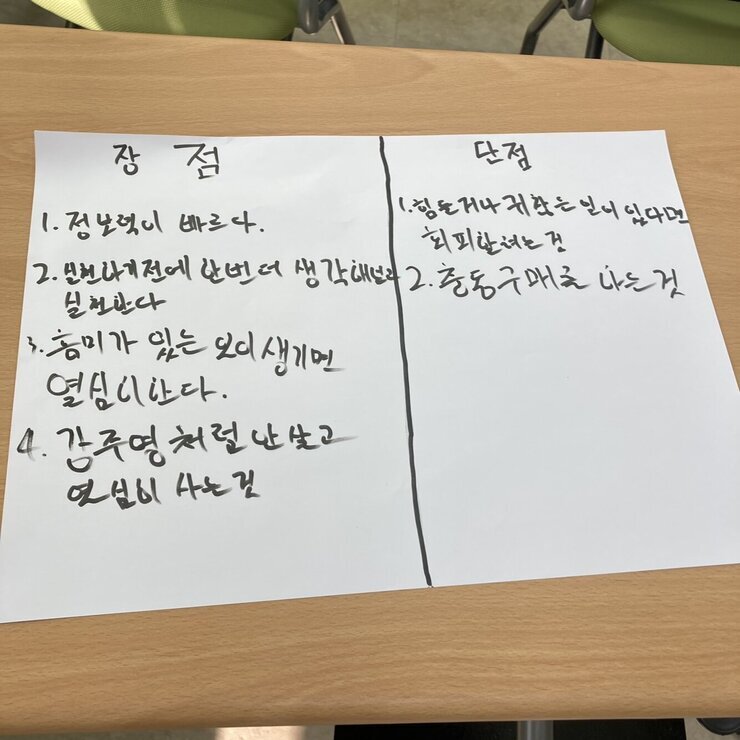 장 점
1. 정보력이 빠르다.
2. 실천하기전에 한번 더 생각해보고
실천한다
3. 흥미가 있는 일이 생기면
열심히한다.
4. 강주영처럼 안살고
열심히 사는것
단점
1. 힘들거나 귀찮은 일이 있다면
회피할려는것
2. 충동구매를 하는것